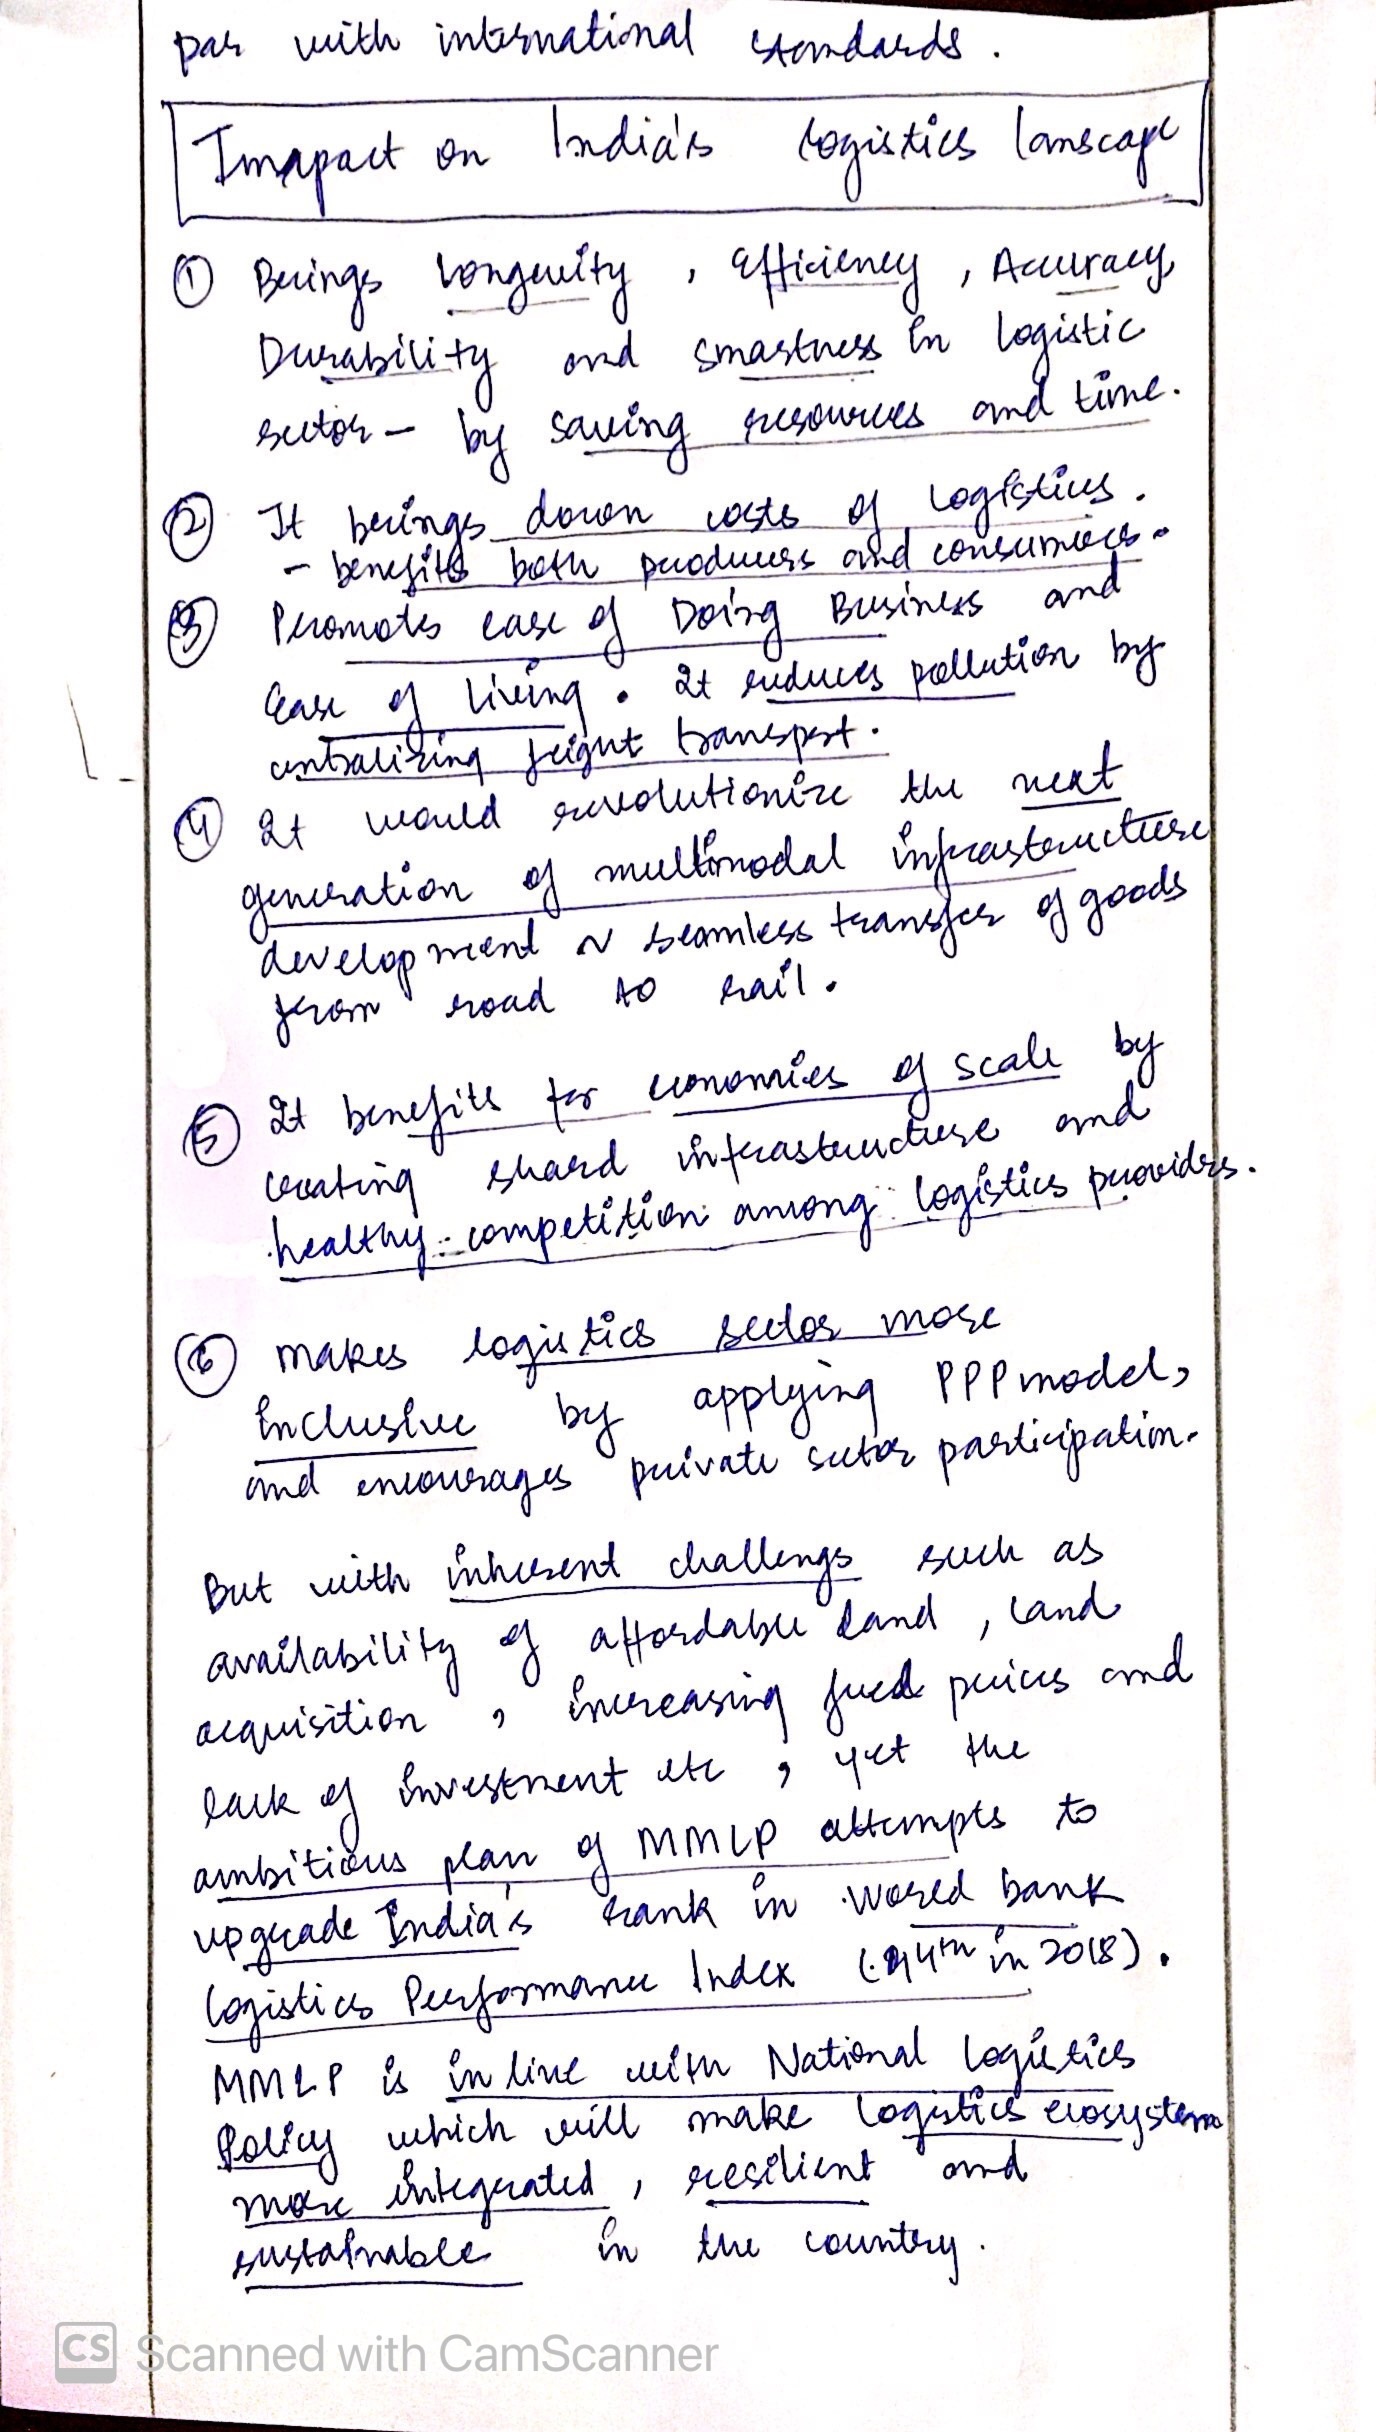 par with international standards.
Imapact on India's logistics lanscape
① Brings longevity, Efficiency, Accuracy,
Durability and smartness in logistic
sector - by saving resources and time.
② It brings down costs of logistics.
- benefits both producers and consumers.
③ Promotes ease of Doing Business and
Ease of living. It reduces pollution by
centralizing freight transport.
④ It would revolutionize the next
generation of multimodal infrastructure
development seamless transfer of goods
from road to rail.
⑤ It benefits for economies of scale by
creating shared infrastructure and
healthy competition among logistics providers.
⑥ makes logistics sector more
inclusive by applying PPP model,
and encourages private sector participation.
But with inherent challengs such as
availability of affordable land, land
acquisition, increasing fuel prices and
lack of investment etc, yet the
ambitious plan of MMLP attempts to
upgrade India's rank in World bank
logistics Performance Index (44th in 2018).
MMLP is in line with National logistics
Policy which will make logistics ecosystem
more integrated, resilient and
sustainable in the country.
CS Scanned with CamScanner